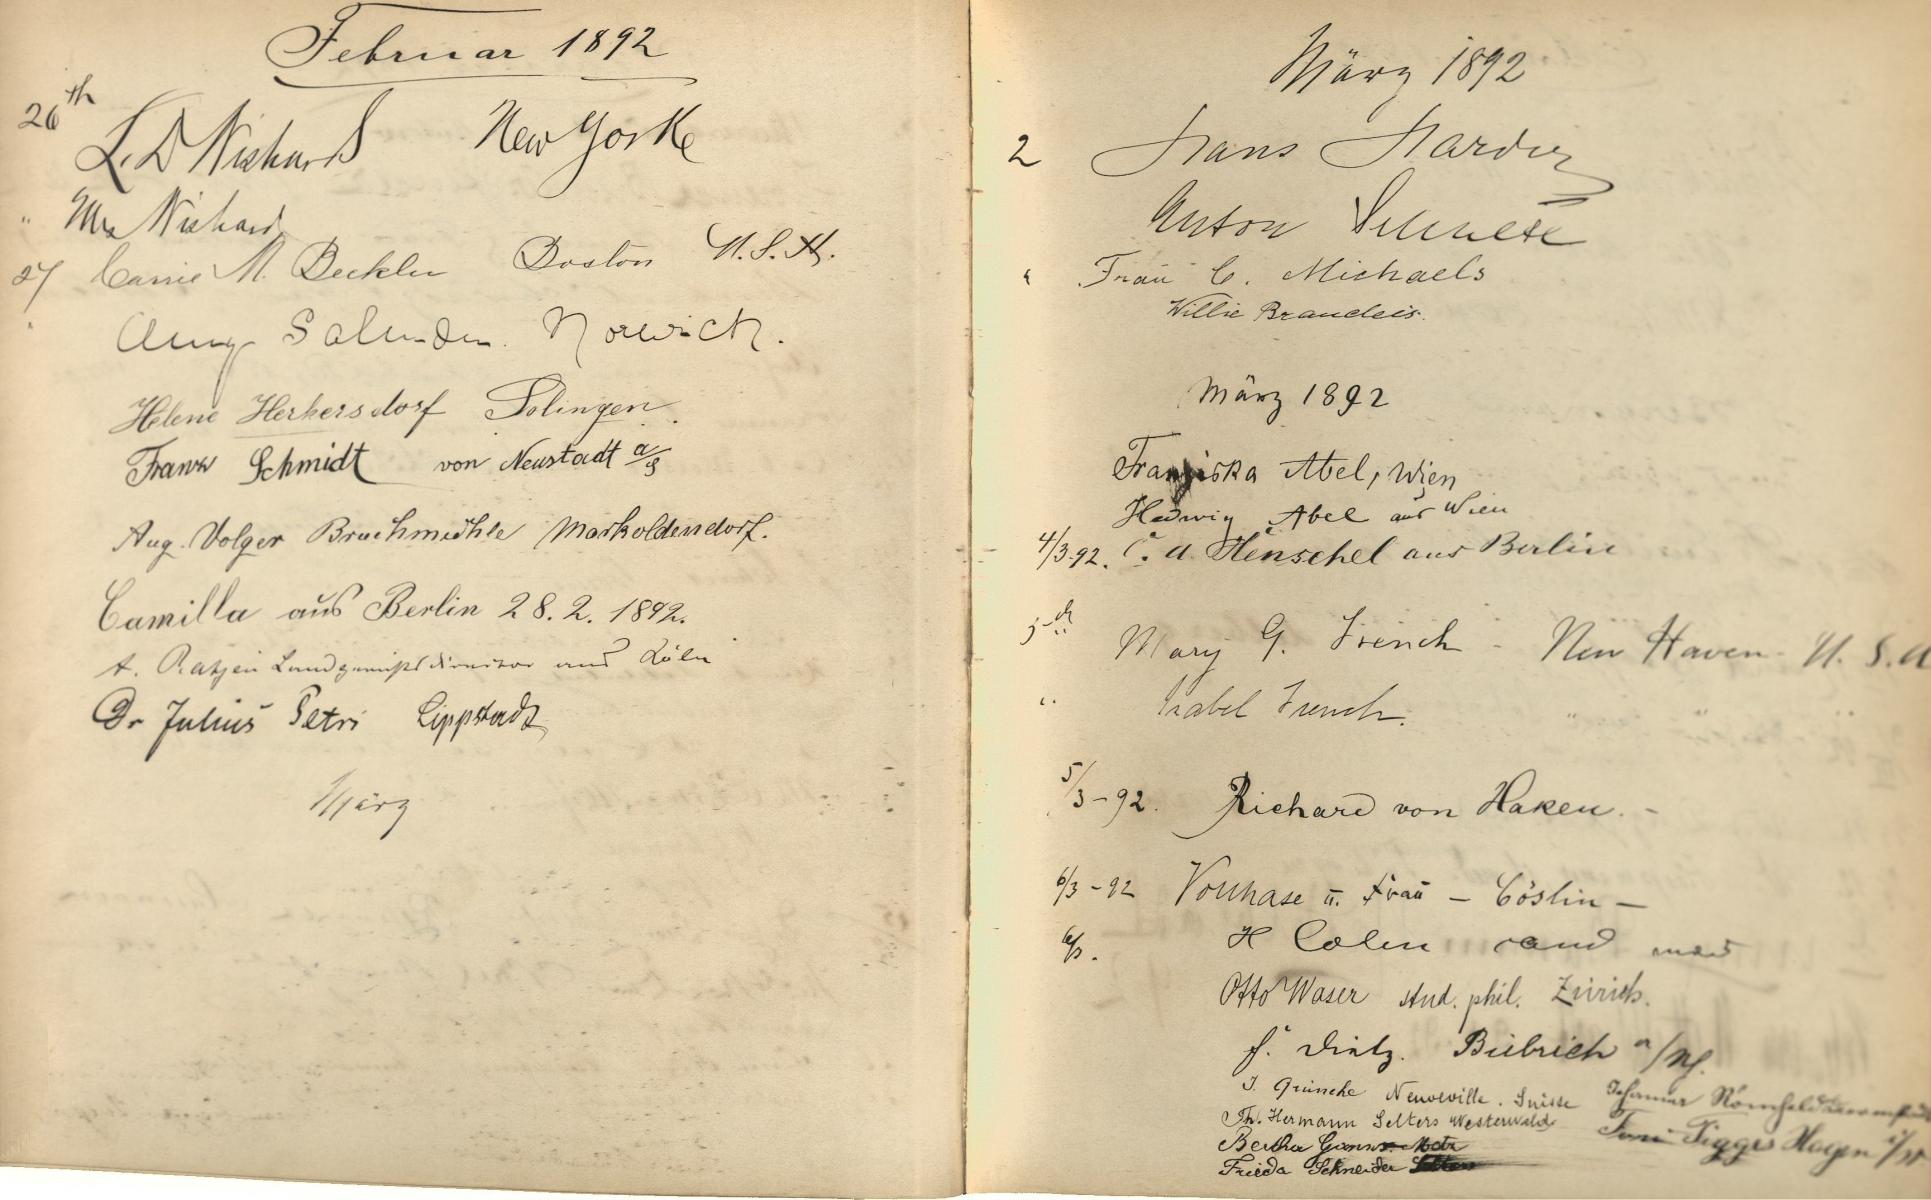 Februar 1892
26th L. D. New York
" Mrs
27 Carrie M. Beckler Boston U.S.A.
" Amy Norwich.
Helene Herkersdorf Solingen.
Franz Schmidt von Neustadt a/
Aug. Volger Bruchmühle Markoldendorf.
Camilla aus Berlin 28.2.1892.
A. Ratjen Landgerichtsdirector aus Köln
Dr Julius Petri Lippstadt
März
März 1892
2 Hans
Anton Schulte
" Frau C. Michaels
Willie Brandeis.
März 1892
Franziska Abel, Wien
Hedwig Abel aus Wien
4/3.92. C. A. Henschel aus Berlin
5th Mary G. French - New Haven - U.S.A
" Isabel French. " "
5/3-92. Richard von Haken. -
6/3-92 Vonhase u. Frau - Cöslin -
6/3. H cand med
Otto Waser stud. phil. Zürich.
F. Dietz. Biebrich a/Rh.
J. Neuveville. Suisse
Th. Hermann Selters Westerwald
Bertha Metz
Frieda Schneider
Johanna Römheld
Toni Tigges Hagen i/W